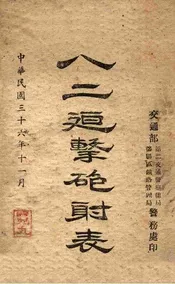 交通部
警務處印
八二廹擊砲射表
中華民國三十六年十一月